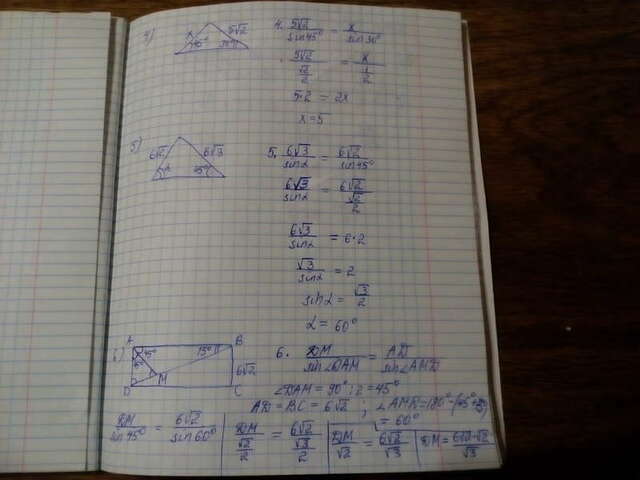 4)
x 5√2
45° 30°
4. 5√2/sin45° = x/sin30°
5√2/(√2/2) = x/(1/2)
5·2 = 2x
x=5
5)
6√2 6√3
α 45°
5. 6√3/sinα = 6√2/sin45°
6√3/sinα = 6√2/(√2/2)
6√3/sinα = 6·2
√3/sinα = 2
sinα = √3/2
α = 60°
6)
A B
45° 15°
45°
6√2
M
D C
6. DM/sin∠DAM = AD/sin∠AMD
∠DAM = 90°:2 = 45°
AD = BC = 6√2 ;
= 60°
DM/sin45° = 6√2/sin60°
DM/(√2/2) = 6√2/(√3/2)
DM/√2 = 6√2/√3
DM = 6√2·√2/√3